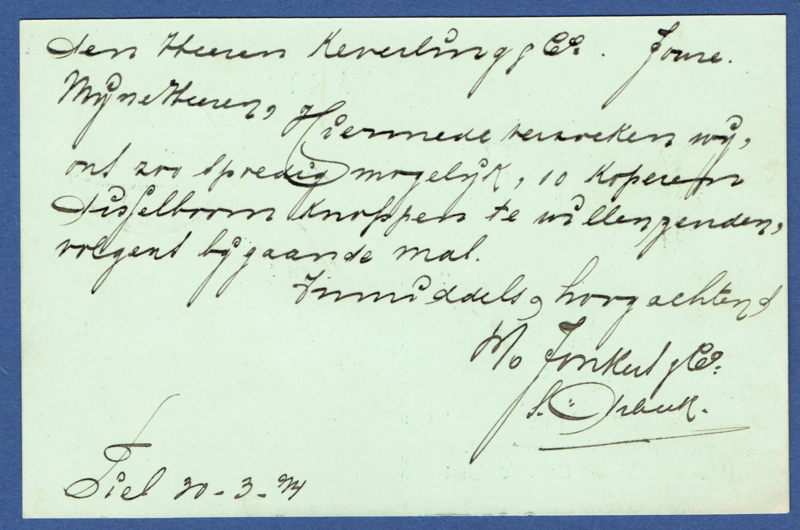 Den Heeren Keverling & Co. Joure.
Mijne Heeren,
Hiermede verzoeken wij,
ons zoo spoedig mogelijk, 10 koperen
Disselboom knoppen te willen zenden,
volgens bijgaande mal.
Inmiddels, hoogachtend
& Co.
Tiel 20-3-94